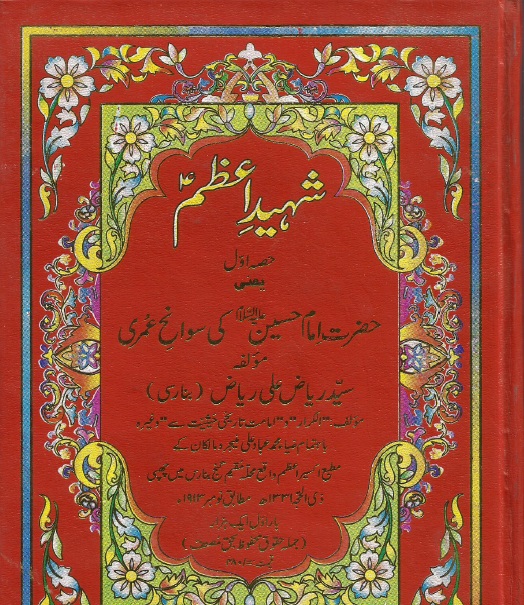 شہیدِ اعظمؑ
حصہ اوّل
یعنی
حضرت امام حسین علیہ السلام کی سوانح عمری
مؤلفہ
سیّد ریاض علی ریاضؔ (بنارسی)
مؤلف "الکرار" و "امامت تاریخی حیثیت سے" وغیرہ
باہتمام محمد عباد علی منیجر و مالکان کے
مطبع اکسیر اعظم واقع محلہ مقیم گنج بنارس میں چھپی
ذی الحجہ ۱۳۳۱ھ مطابق نومبر ۱۹۱۳ء
بار اوّل ایک ہزار
(جملہ حقوق محفوظ بحق مصنف)
قیمت